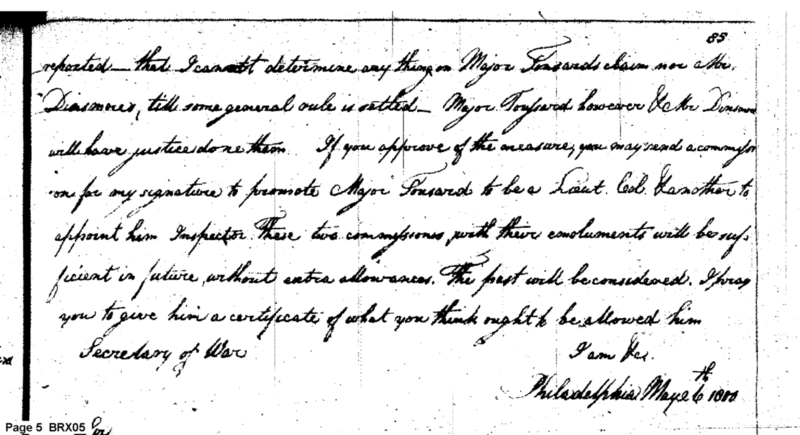 85
reported — that I cannot determine any thing on Major Tousards claim nor Mr.
Dinsmores, till some general rule is settled — Major Toussard however & Mr Dinsmore
will have justice done them. If you approve of the measure, you may send a commissi
on for my signature to promote Major Tousard to be a Lieut. Col. & another to
appoint him Inspector. These two commissions, with their emoluments will be suf-
ficient in future, without extra allowances. The past will be considered. I pray
you to give him a certificate of what you think ought to be allowed him
Secretary of War
I am &c.
Philadelphia May 26th 1800
Page 5 BRX05